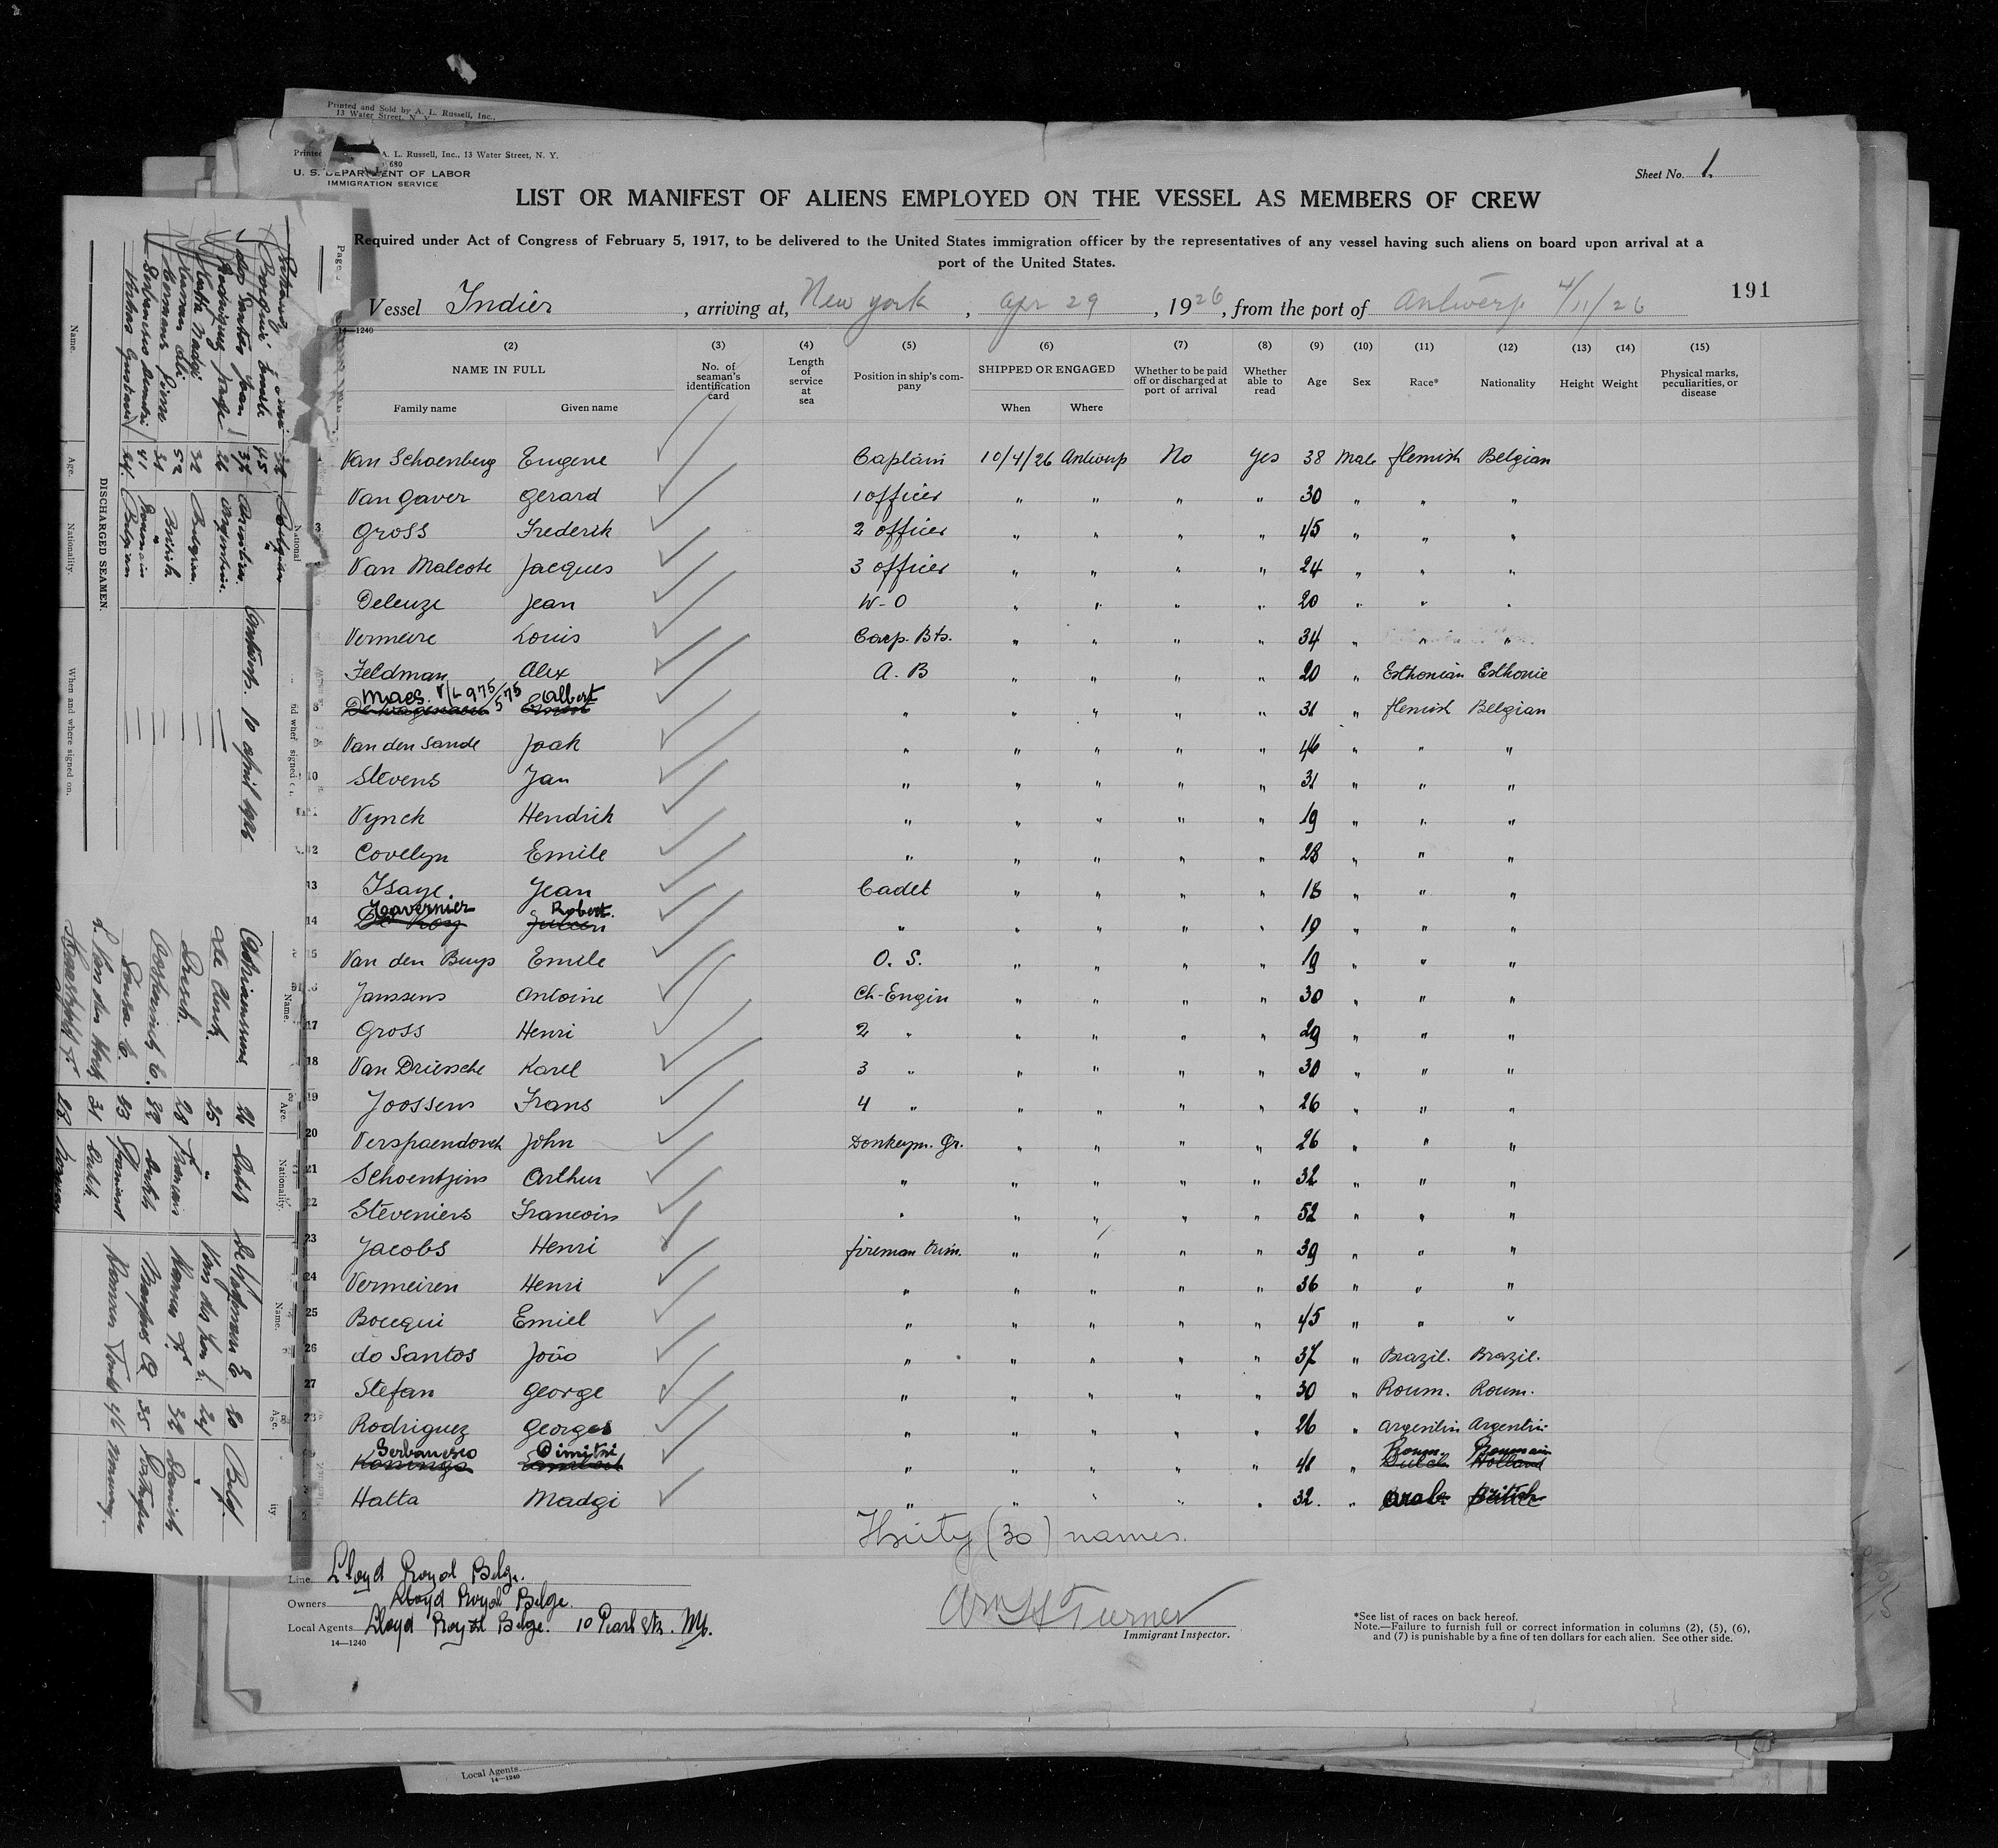 Printed and Sold by A. L. Russell, Inc.,
13 Water Street, N. Y.
Printed A. L. Russell, Inc., 13 Water Street, N. Y.
680
U. S. DEPARTMENT OF LABOR
IMMIGRATION SERVICE
Sheet No. 1.
LIST OR MANIFEST OF ALIENS EMPLOYED ON THE VESSEL AS MEMBERS OF CREW
Required under Act of Congress of February 5, 1917, to be delivered to the United States immigration officer by the representatives of any vessel having such aliens on board upon arrival at a
port of the United States.
191
Vessel Indier, arriving at, New york, apr 29, 1926, from the port of Antwerp 4/11/26
14—1240
(2) (3) (4) (5) (6) (7) (8) (9) (10) (11) (12) (13) (14) (15)
NAME IN FULL No. of seaman's identification card Length of service at sea Position in ship's company SHIPPED OR ENGAGED Whether to be paid off or discharged at port of arrival Whether able to read Age Sex Race* Nationality Height Weight Physical marks, peculiarities, or disease
Family name Given name When Where
Van Schoenberg Eugene Captain 10/4/26 Antwerp No Yes 38 Male flemish Belgian
Van Gaver Gerard 1 officer " " " " 30 " " "
3 Gross Frederik 2 officer " " " " 45 " " "
Van Malcote Jacques 3 officer " " " " 24 " " "
Deleuze Jean W-O " " " " 20 " " "
Vermeire Louis Carp. Bts. " " " " 34 " " "
Feldman Alex A. B " " " " 20 " Esthonian Esthonie
Maes. 975/575 Albert
8 " " " " " 31 " flemish Belgian
9 Van den Sande Jaak " " " " " 46 " " "
10 Stevens Jan " " " " " 31 " " "
11 Vynck Hendrik " " " " " 19 " " "
12 Covelyn Emile " " " " " 28 " " "
13 Isaye. Jean Cadet " " " " 18 " " "
Tavernier Robert.
14 De Roy Julien " " " " " 19 " " "
15 Van den Buys Emile O. S. " " " " 19 " " "
16 Janssens Antoine Ch-Engin " " " " 30 " " "
17 Gross Henri 2 " " " " " 29 " " "
18 Van Driessche Karel 3 " " " " " 30 " " "
19 Joossens Frans 4 " " " " " 26 " " "
20 Verspaendonck John Donkeym. Gr. " " " " 26 " " "
21 Schoentjens Arthur " " " " " 32 " " "
22 Steveniers Francois " " " " " 52 " " "
23 Jacobs Henri fireman trim. " " " " 39 " " "
24 Vermeiren Henri " " " " " 36 " " "
25 Bocqui Emiel " " " " " 45 " " "
26 do Santos João " " " " " 37 " Brazil. Brazil.
27 Stefan George " " " " " 30 " Roum. Roum.
28 Rodriguez Georges " " " " " 26 " Argentin Argentin
Serbanesco Dimitri Roum. Roumain
Koninga " " " " " 41 " Dutch Holland
Hatta Madgi " " " " " 32. " Arab British
Thirty (30) names.
Line Lloyd Royal Belge.
Owners Lloyd Royal Belge.
Local Agents Lloyd Royal Belge. 10 Pearl Str. NY.
14—1240
Wm H Turner
Immigrant Inspector.
*See list of races on back hereof.
Note.—Failure to furnish full or correct information in columns (2), (5), (6),
and (7) is punishable by a fine of ten dollars for each alien. See other side.
Local Agents
14—1240
DISCHARGED SEAMEN.
Name. Age. Nationality. When and where signed on.
45
do Santos Joan 37 Brasilien
Rodriguez Jorge 26 Argentin.
Hatta Madgi 32
52 British
Hermans Pierre 31 Belgian
Serbanesco Dumitri 41 Roumain
Gustaaf 24 Belgian
Antwerp. 10 april 1926
Name. Age. Nationality. Name. Age.
Adriaanssens 26 Dutch
25 "
Dresch. 28 Francais
Dutch
Sousa C.
L. Van den 31 Dutch
20 Belg.
Hansen 32 Danish
35
Norway.